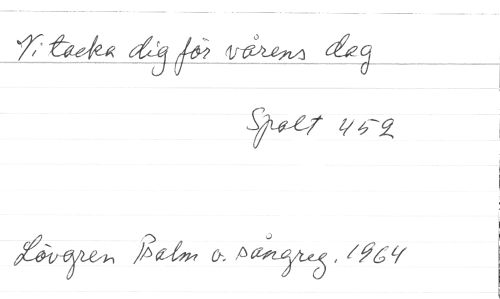 Vi tacka dig för vårens dag
Spalt 452
Lövgren Psalm o. sångreg. 1964